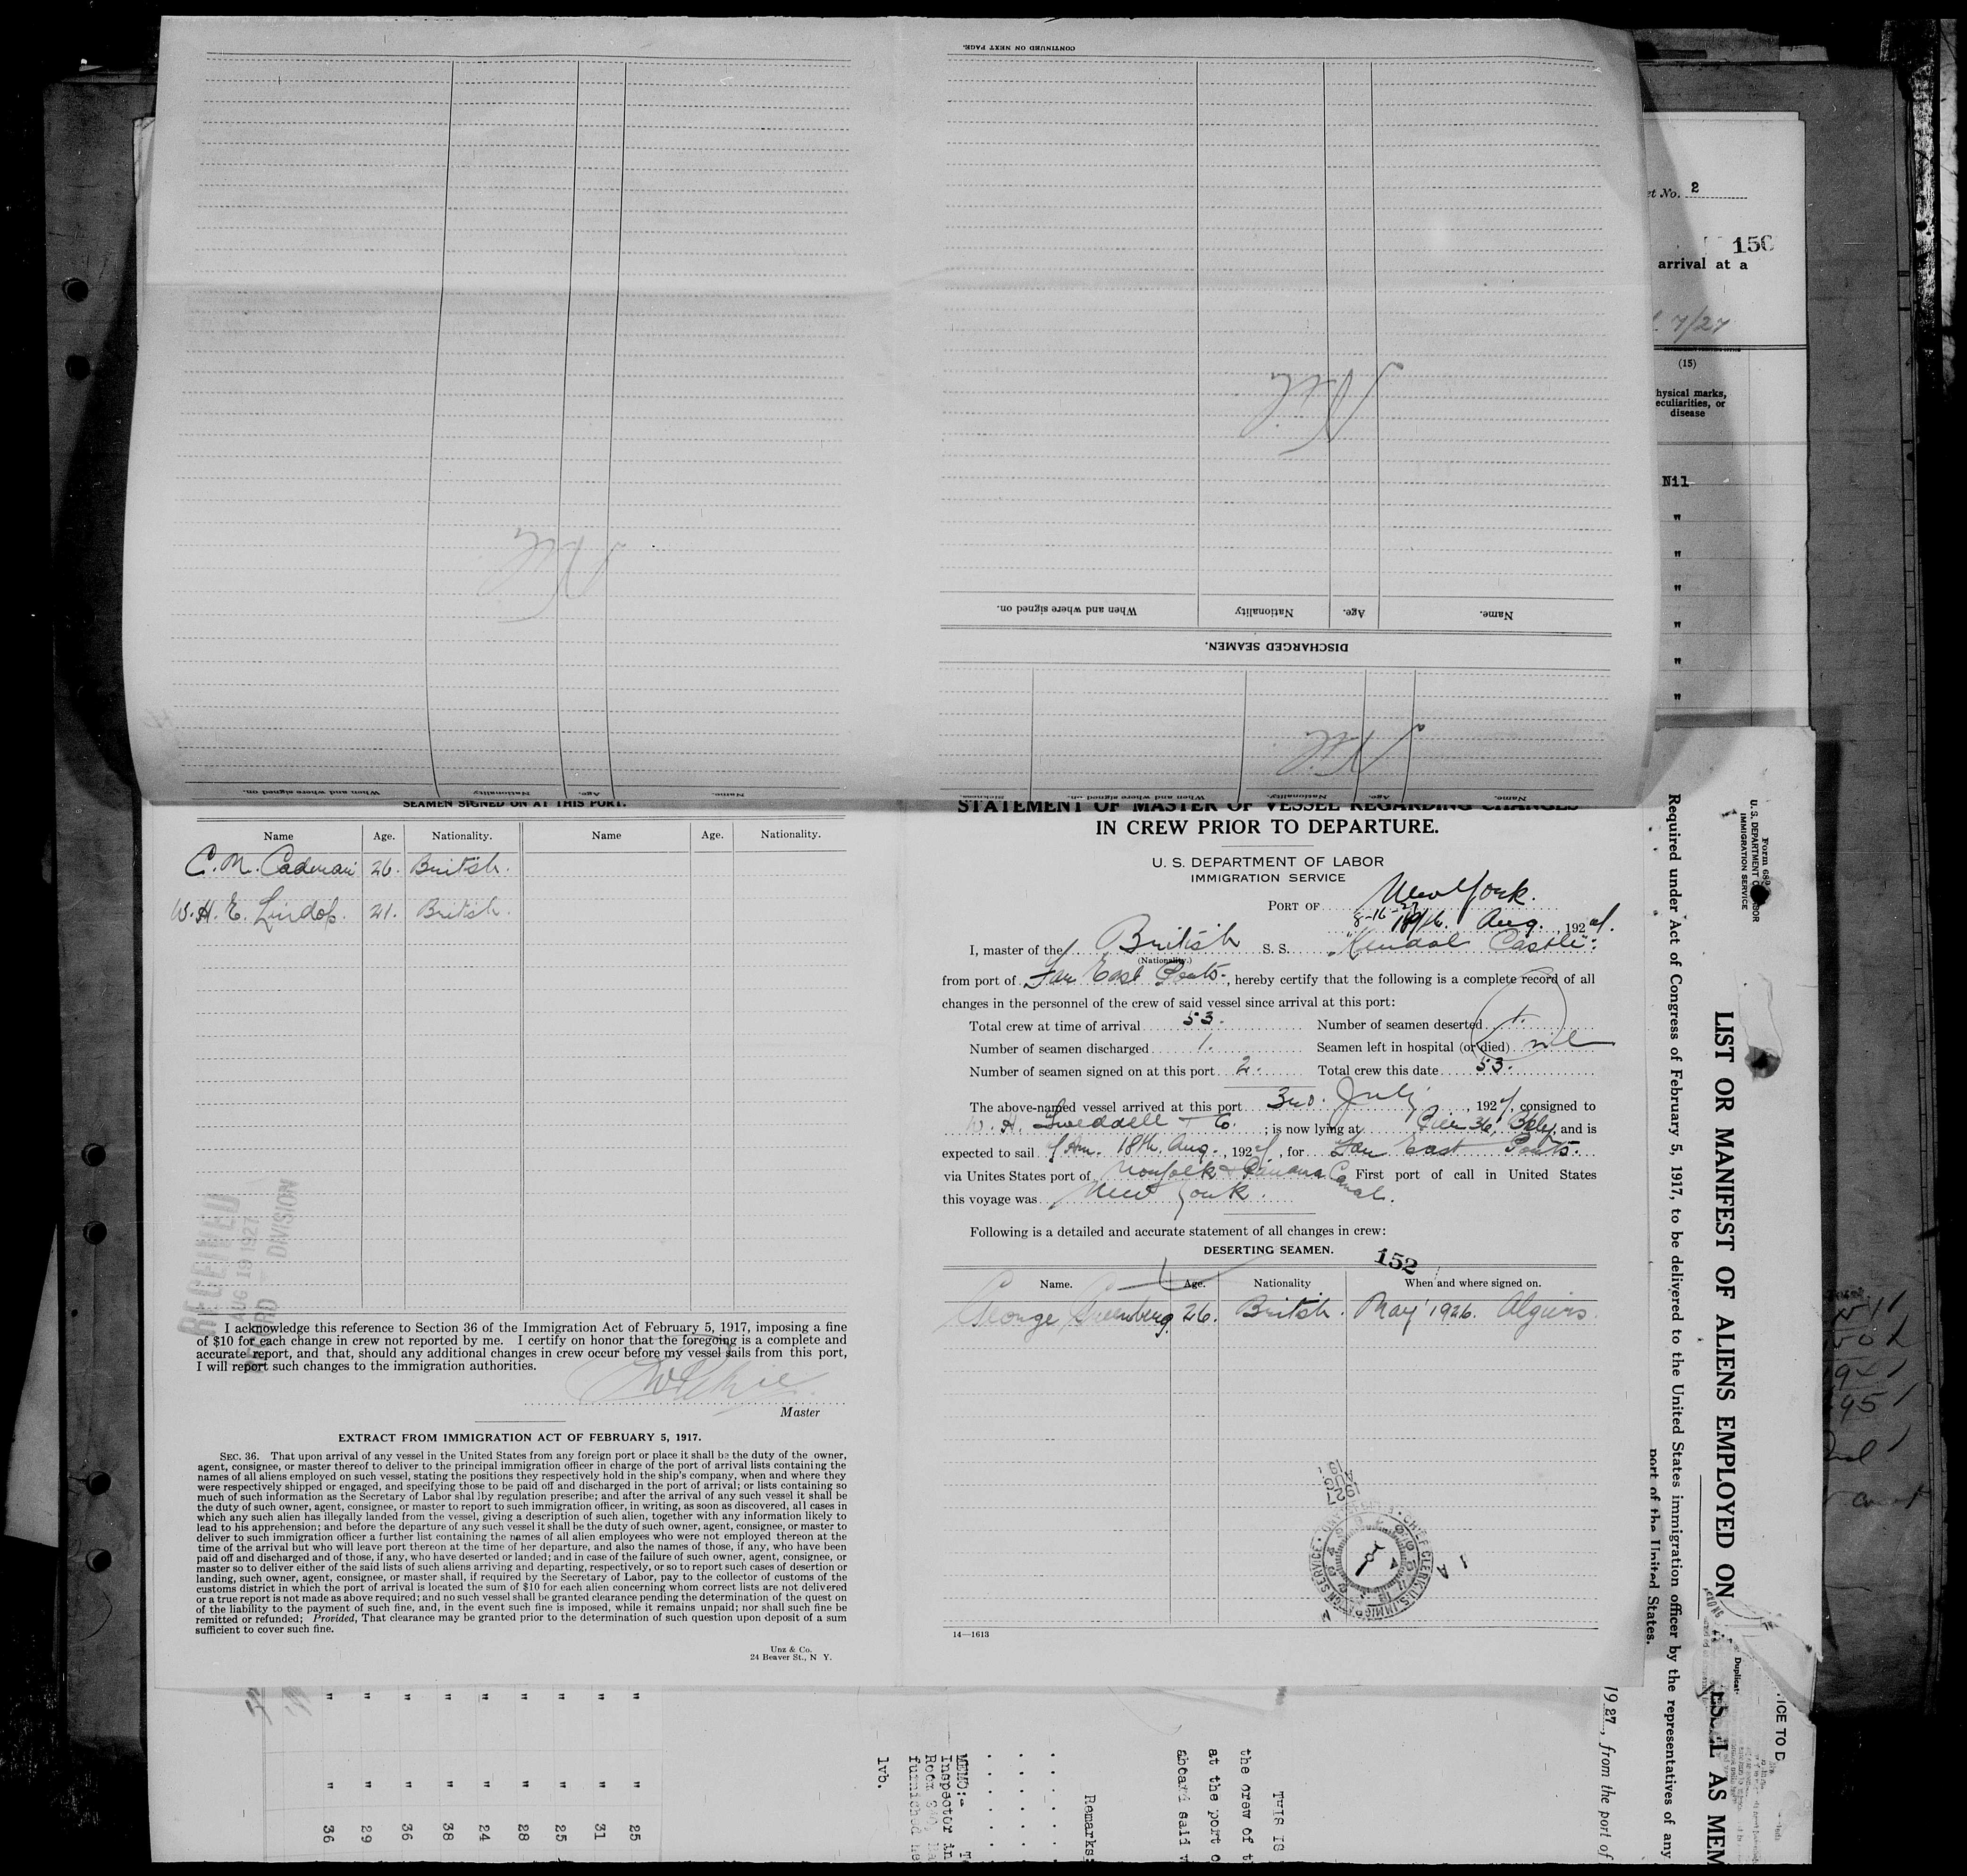 CONTINUED ON NEXT PAGE.
Nil
Name. Age. Nationality When and where signed on.
DISCHARGED SEAMEN.
Nil
Name. Age. Nationality. When and where signed on. Sickness.
Nil
Name. Age. Nationality When and where signed on.
SEAMEN SIGNED ON AT THIS PORT.
Name Age. Nationality. Name Age. Nationality.
C. M. Cadman 26. British.
W. H. E. Lindop. 21. British.
RECEIVED
AUG 19 1927
RECORD DIVISION
I acknowledge this reference to Section 36 of the Immigration Act of February 5, 1917, imposing a fine
of $10 for each change in crew not reported by me. I certify on honor that the foregoing is a complete and
accurate report, and that, should any additional changes in crew occur before my vessel sails from this port,
I will report such changes to the immigration authorities.
Master
EXTRACT FROM IMMIGRATION ACT OF FEBRUARY 5, 1917.
SEC. 36. That upon arrival of any vessel in the United States from any foreign port or place it shall be the duty of the owner,
agent, consignee, or master thereof to deliver to the principal immigration officer in charge of the port of arrival lists containing the
names of all aliens employed on such vessel, stating the positions they respectively hold in the ship's company, when and where they
were respectively shipped or engaged, and specifying those to be paid off and discharged in the port of arrival; or lists containing so
much of such information as the Secretary of Labor shal lby regulation prescribe; and after the arrival of any such vessel it shall be
the duty of such owner, agent, consignee, or master to report to such immigration officer, in writing, as soon as discovered, all cases in
which any such alien has illegally landed from the vessel, giving a description of such alien, together with any information likely to
lead to his apprehension; and before the departure of any such vessel it shall be the duty of such owner, agent, consignee, or master to
deliver to such immigration officer a further list containing the names of all alien employees who were not employed thereon at the
time of the arrival but who will leave port thereon at the time of her departure, and also the names of those, if any, who have been
paid off and discharged and of those, if any, who have deserted or landed; and in case of the failure of such owner, agent, consignee, or
master so to deliver either of the said lists of such aliens arriving and departing, respectively, or so to report such cases of desertion or
landing, such owner, agent, consignee, or master shall, if required by the Secretary of Labor, pay to the collector of customs of the
customs district in which the port of arrival is located the sum of $10 for each alien concerning whom correct lists are not delivered
or a true report is not made as above required; and no such vessel shall be granted clearance pending the determination of the quest on
of the liability to the payment of such fine, and, in the event such fine is imposed, while it remains unpaid; nor shall such fine be
remitted or refunded; Provided, That clearance may be granted prior to the determination of such question upon deposit of a sum
sufficient to cover such fine.
Unz & Co.
24 Beaver St., N Y.
STATEMENT OF MASTER OF VESSEL REGARDING CHANGES
IN CREW PRIOR TO DEPARTURE.
U. S. DEPARTMENT OF LABOR
IMMIGRATION SERVICE
PORT OF New York.
8-16-27
Aug. , 1927.
I, master of the British S. S. "Kendal Castle".
(Nationality.)
from port of Far East Ports., hereby certify that the following is a complete record of all
changes in the personnel of the crew of said vessel since arrival at this port:
Total crew at time of arrival 53. Number of seamen deserted 1.
Number of seamen discharged 1. Seamen left in hospital (or died) nil
Number of seamen signed on at this port 2. Total crew this date 53.
The above-named vessel arrived at this port 3rd. July , 1927, consigned to
W. H. Tweddell & Co. ; is now lying at Pier 36, Bkly, and is
expected to sail 18th. Aug. , 1927, for Far East Ports.
via Unites States port of Norfolk & Panama Canal. First port of call in United States
this voyage was New York.
Following is a detailed and accurate statement of all changes in crew:
DESERTING SEAMEN.
152
Name. Age. Nationality When and where signed on.
George Greenberg. 26. British. May 1926. Algiers.
CHIEF CLERK, U.S. IMMIGRATION SERVICE
14—1613
2
150
arrival at a
7/27
(15)
hysical marks,
eculiarities, or
disease
Nil
"
"
"
"
"
"
Form 689
U. S. DEPARTMENT OF LABOR
IMMIGRATION SERVICE
LIST OR MANIFEST OF ALIENS EMPLOYED ON
AS MEM
Required under Act of Congress of February 5, 1917, to be delivered to the United States immigration officer by the representatives of any
port of the United States.
1927, from the port of
THIS IS
the crew of t
at the port o
aboard said v
Remarks:
MEMO:-
Inspector in
furnished he
lvb.
" " " " " " " " "
" " " " " " " " "
25 31 25 28 24 38 36 29 36